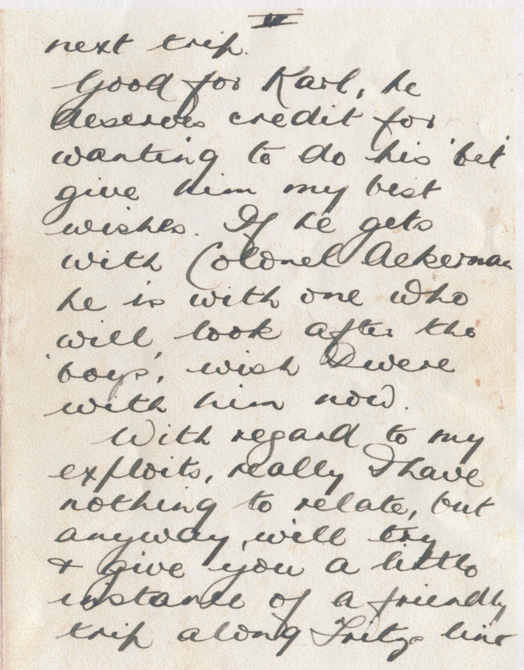 II
next trip.
Good for Karl, he
deserves credit for
wanting to do his 'bit'
give him my best
wishes. If he gets
with Colonel Ackerman
he is with one who
will look after the
'boys', wish I were
with him now.
With regard to my
exploits, really I have
nothing to relate, but
anyway, will try
& give you a little
instance of a friendly
trip along Fritz's line